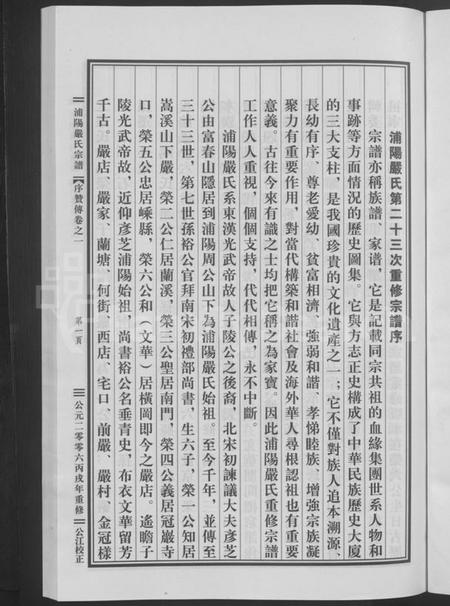 浦陽嚴氏第二十三次重修宗譜序
宗譜亦稱族譜、家谱，它是記載同宗共祖的血緣集團世系人物和
事跡等方面情況的歷史圖集。它與方志正史構成了中華民族歷史大廈
的三大支柱，是我國珍貴的文化遺產之一；它不僅對族人追本溯源、
長幼有序、尊老愛幼、貧富相濟、強弱和諧、孝悌睦族、增強宗族凝
聚力有重要作用，對當代構築和諧社會及海外華人尋根認祖也有重要
意義。古往今來有識之士均把它稱之為家寶。因此浦陽嚴氏重修宗譜
工作人人重視，個個支持，代代相傳，永不中斷。
浦陽嚴氏系東漢光武帝故人子陵公之後裔，北宋初諫議大夫彥芝
公由富春山隱居到浦陽周公山下為浦陽嚴氏始祖。至今千年，並傳至
三十三世，第七世孫裕公官拜南宋初禮部尚書，生六子，榮一公知居
嵩溪山下嚴，榮二公仁居蘭溪，榮三公聖居南門，榮四公義居冠巖寺
口，榮五公忠居嵊縣，榮六公和（文華）居橫岡即今之嚴店。遙瞻子
陵光武帝故，近仰彥芝浦陽始祖，尚書裕公名垂青史，布衣文華留芳
千古。嚴店、嚴家、蘭塘、何街、西店、宅口、前嚴、嚴村、金冠樣
浦陽嚴氏宗譜
【序贊傳卷之一
第一頁
公元二零零六丙戌年重修
公江校正